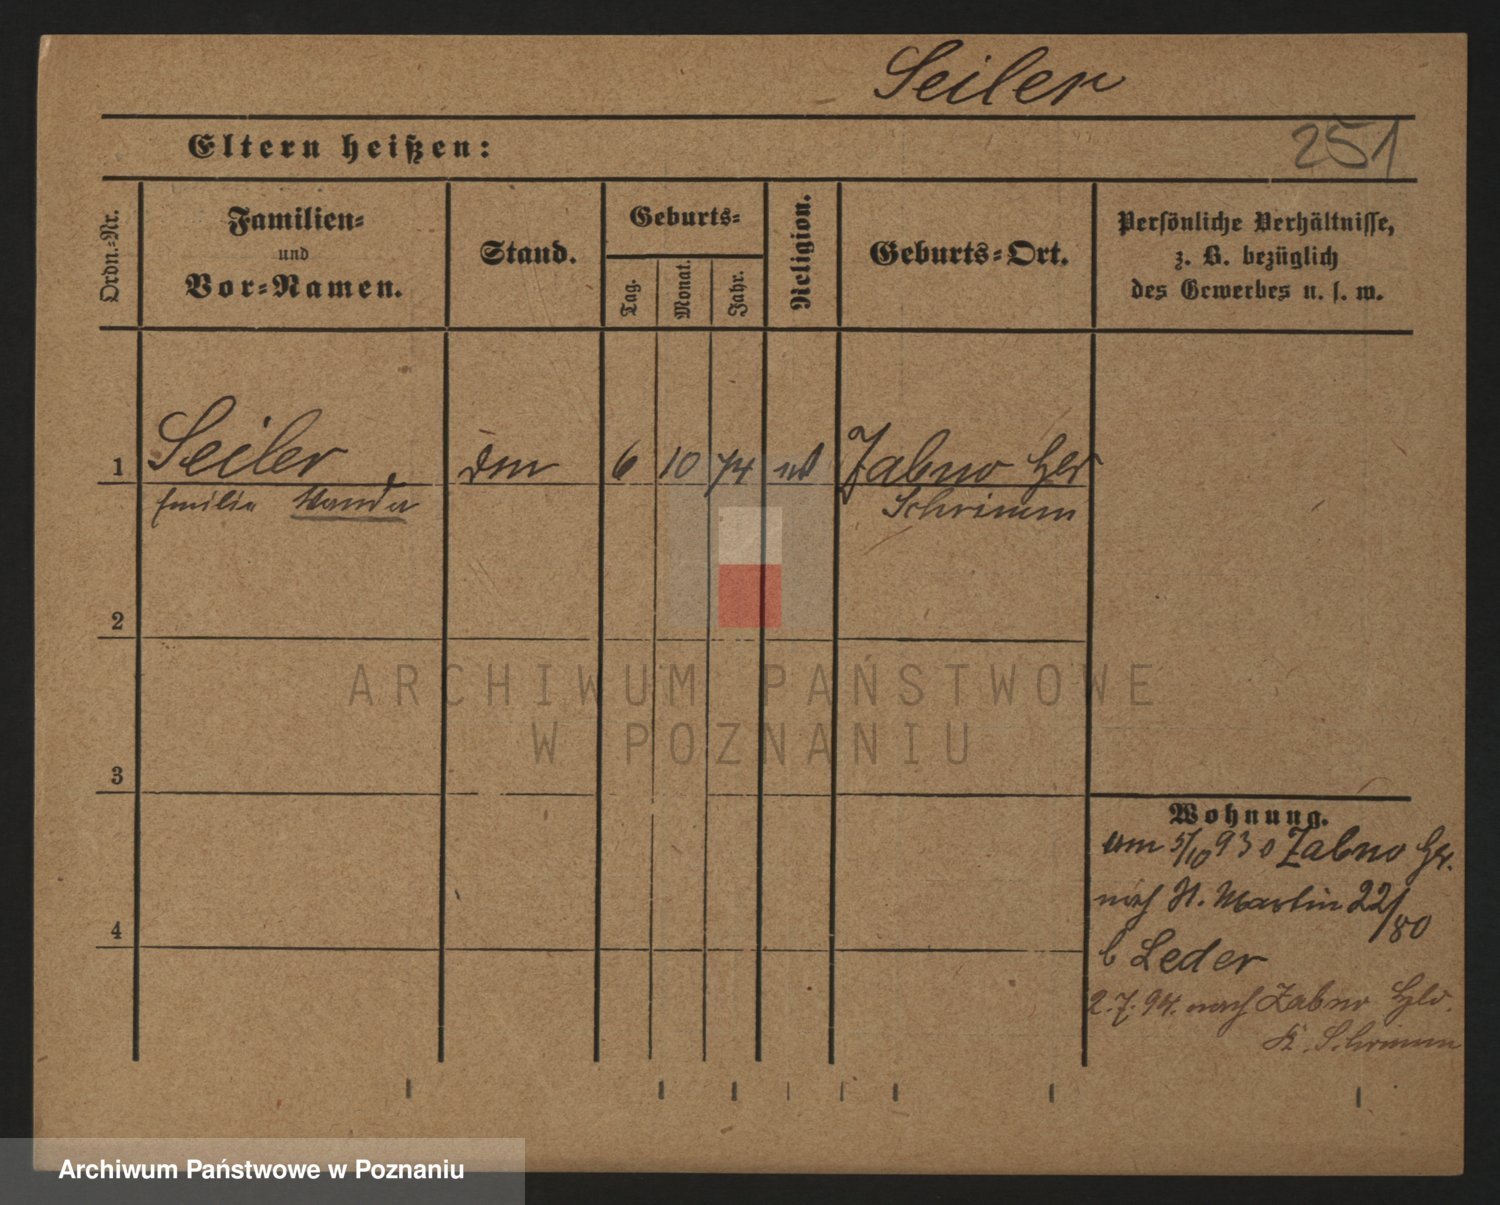 Seiler
251
Eltern heißen:
Ordn.-Nr.
Familien-
und
Vor-Namen.
Stand.
Geburts-
Tag.
Monat.
Jahr.
Religion.
Geburts-Ort.
Persönliche Verhältnisse,
z. B. bezüglich
des Gewerbes u. s. w.
1 Seiler 6 10 74 Zabno Hld
Emilie Wanda Schrimm
2
3
4
Wohnung.
am 5/10 93 Zabno
nach St. Martin 22/80
b Leder
2.7.94. nach Zabno Hld.
K. Schrimm
ARCHIWUM PAŃSTWOWE
W POZNANIU
Archiwum Państwowe w Poznaniu